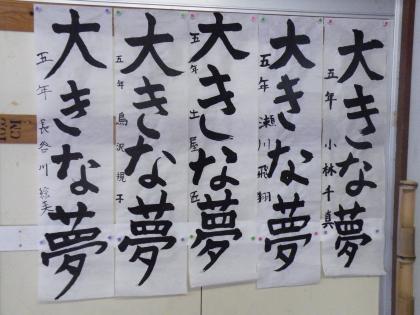 大きな夢
五年 小林千真
大きな夢
五年 瀬川飛翔
大きな夢
五年 土屋
大きな夢
五年 鳥沢規子
大きな夢
五年 長谷川絵美